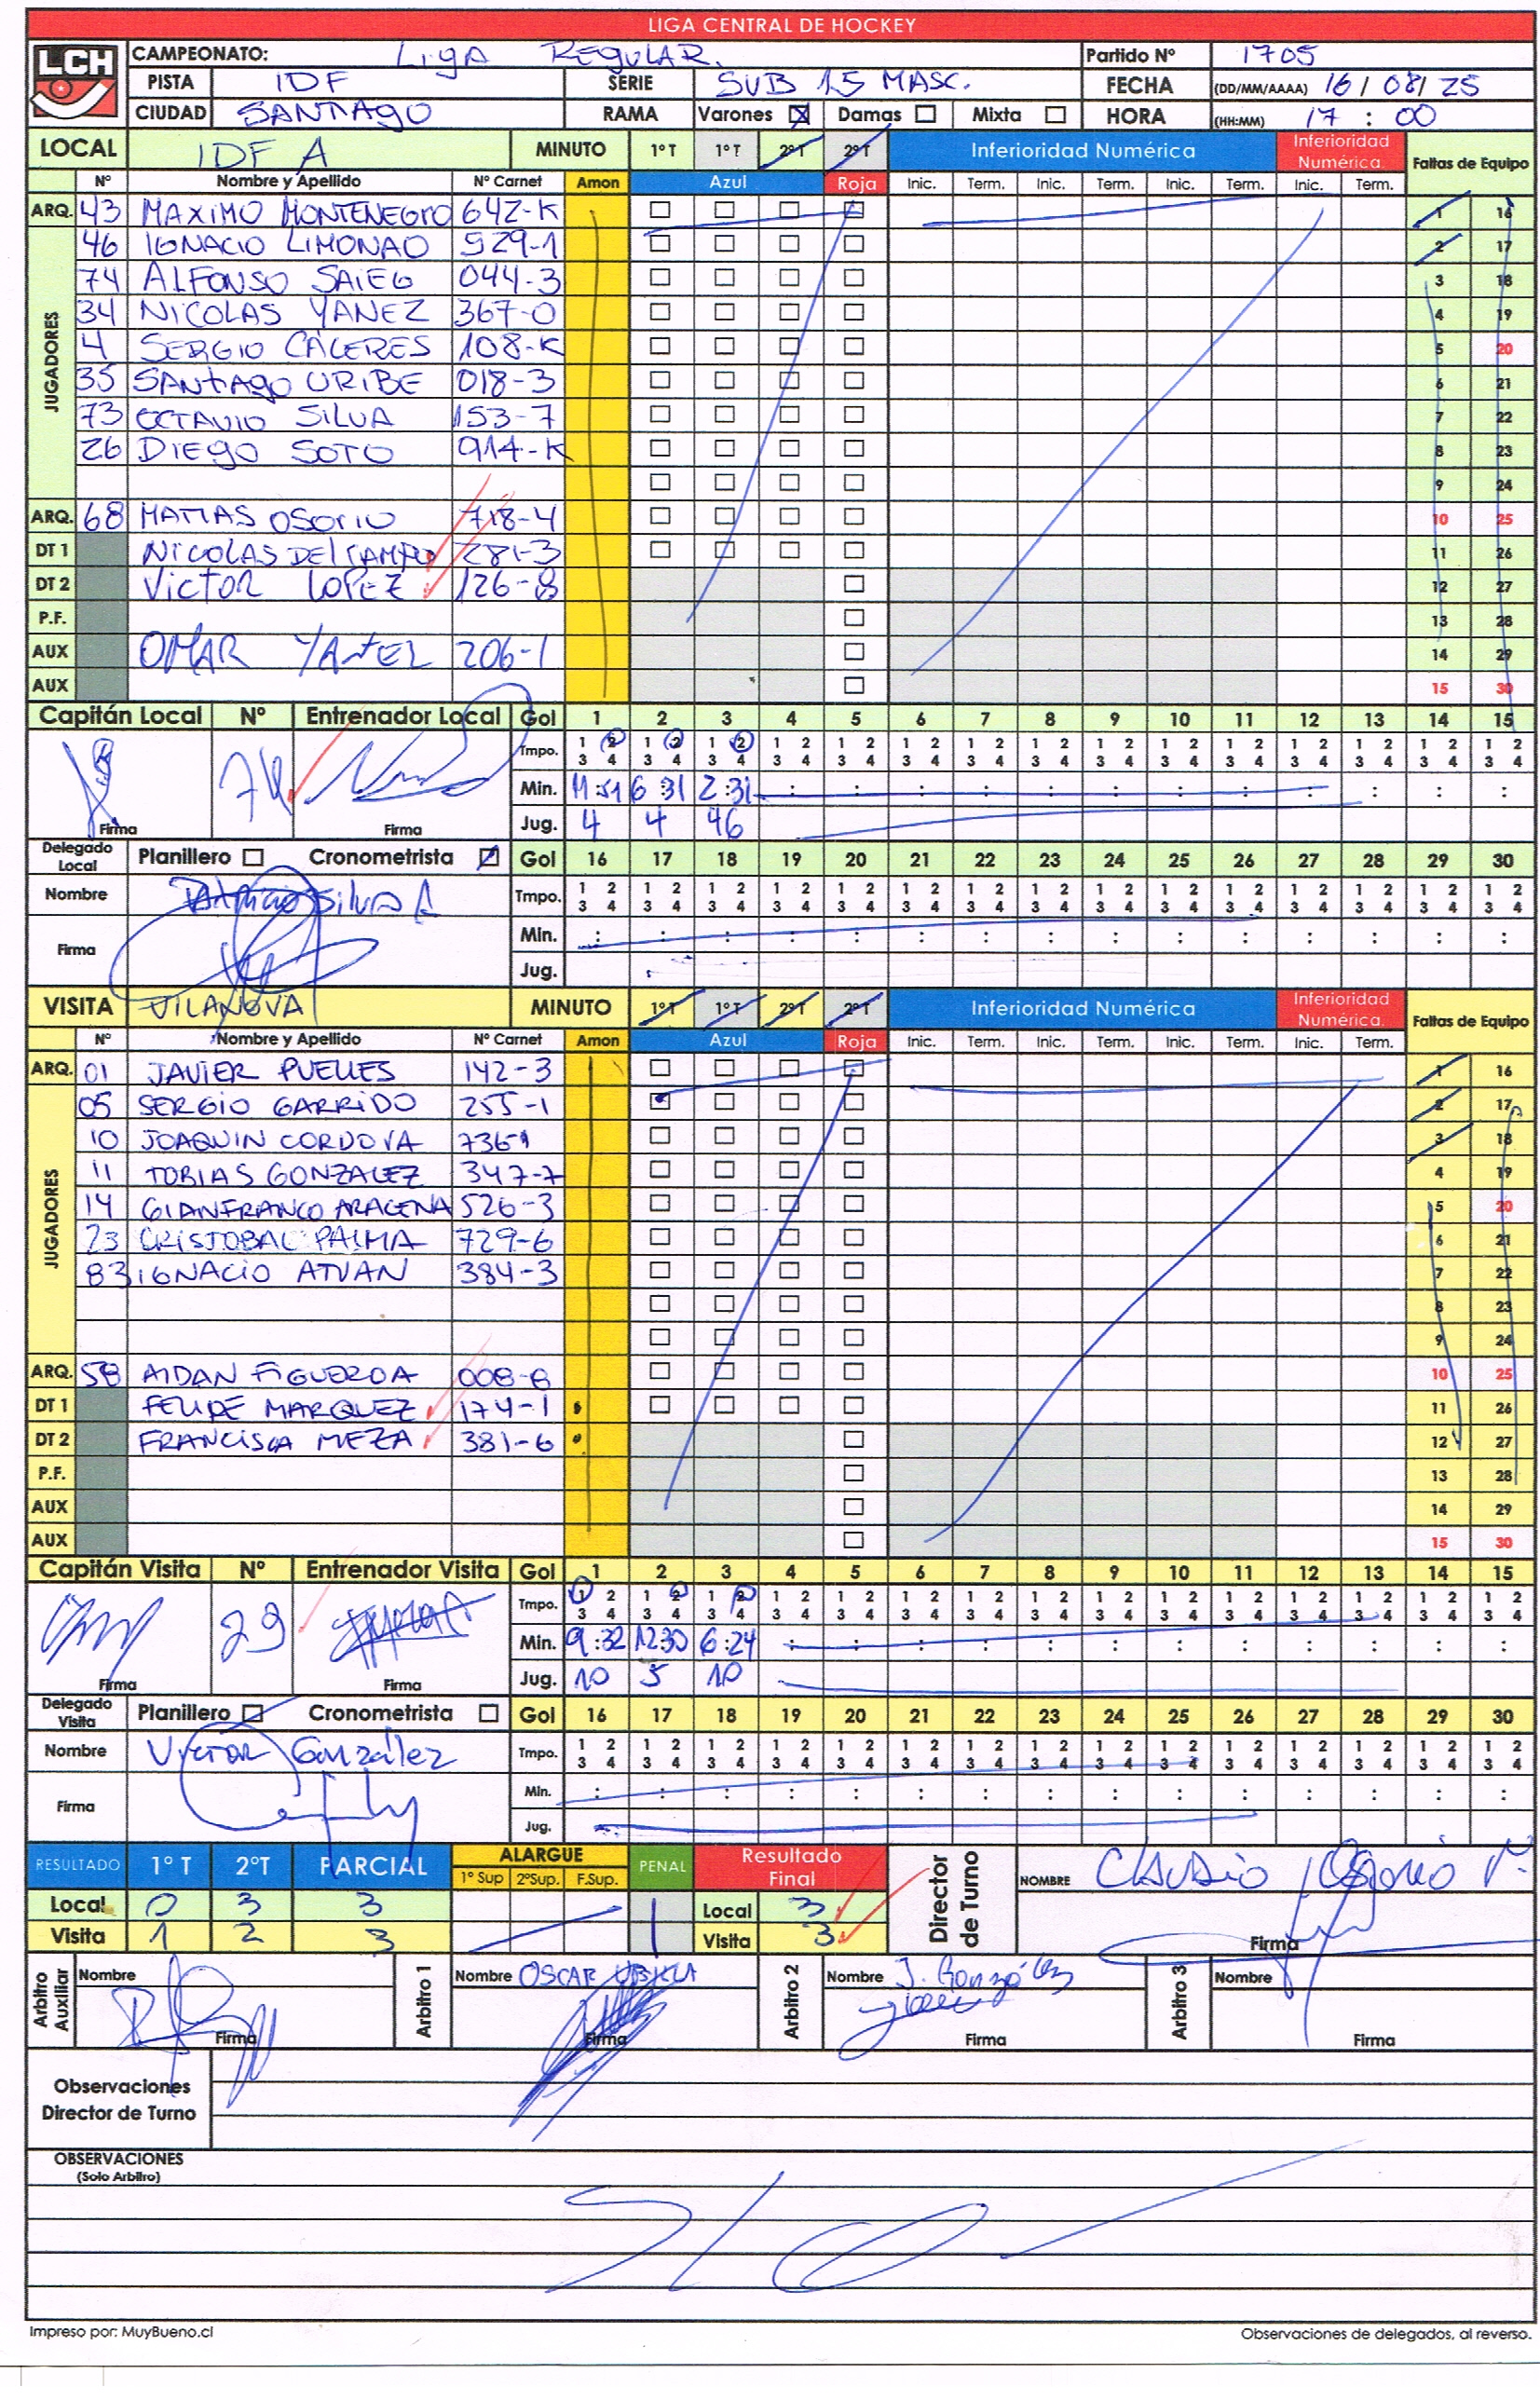 LIGA CENTRAL DE HOCKEY
LCH
CAMPEONATO: Liga REGULAR. Partido Nº 1705
PISTA IDF SERIE SUB 15 MASC. FECHA (DD/MM/AAAA) 16/08/25
CIUDAD SANTIAGO RAMA Varones Damas Mixta HORA (HH:MM) 17 : 00
LOCAL IDF A MINUTO 1º T 1º T 2º T 2º T Inferioridad Numérica Inferioridad Numérica. Faltas de Equipo
Nº Nombre y Apellido Nº Carnet Amon Azul Roja Inic. Term. Inic. Term. Inic. Term. Inic. Term.
ARQ. 43 MAXIMO MONTENEGRO 642-K 1 16
JUGADORES
46 IGNACIO LIMONAO 529-1 2 17
74 ALFONSO SAIEG 044-3 3 18
34 NICOLAS YANEZ 367-0 4 19
4 SERGIO CACERES 108-K 5 20
35 SANTIAGO URIBE 018-3 6 21
73 OCTAVIO SILVA 153-7 7 22
26 DIEGO SOTO 914-K 8 23
9 24
ARQ. 68 MATIAS OSORIO 718-4 10 25
DT 1 NICOLAS DEL CAMPO 281-3 11 26
DT 2 VICTOR LOPEZ 126-8 12 27
P.F. 13 28
AUX OMAR YAÑEZ 206-1 14 29
AUX 15 30
Capitán Local Nº Entrenador Local Gol 1 2 3 4 5 6 7 8 9 10 11 12 13 14 15
Tmpo. 1 2 1 2 1 2 1 2 1 2 1 2 1 2 1 2 1 2 1 2 1 2 1 2 1 2 1 2 1 2
3 4 3 4 3 4 3 4 3 4 3 4 3 4 3 4 3 4 3 4 3 4 3 4 3 4 3 4 3 4
74 Min. 11:51 6:31 2:31 : : : : : : : : : : : :
Firma Firma Jug. 4 4 46
Delegado Local Planillero Cronometrista Gol 16 17 18 19 20 21 22 23 24 25 26 27 28 29 30
Nombre Patricio Silva A Tmpo. 1 2 1 2 1 2 1 2 1 2 1 2 1 2 1 2 1 2 1 2 1 2 1 2 1 2 1 2 1 2
3 4 3 4 3 4 3 4 3 4 3 4 3 4 3 4 3 4 3 4 3 4 3 4 3 4 3 4 3 4
Firma Min. : : : : : : : : : : : : : : :
Jug.
VISITA VILANOVA MINUTO 1º T 1º T 2º T 2º T Inferioridad Numérica Inferioridad Numérica. Faltas de Equipo
Nº Nombre y Apellido Nº Carnet Amon Azul Roja Inic. Term. Inic. Term. Inic. Term. Inic. Term.
ARQ. 01 JAVIER PUELLES 142-3 1 16
JUGADORES
05 SERGIO GARRIDO 255-1 2 17
10 JOAQUIN CORDOVA 736-1 3 18
11 TOBIAS GONZALEZ 347-7 4 19
14 GIANFRANCO ARACENA 526-3 5 20
23 CRISTOBAL PALMA 729-6 6 21
83 IGNACIO ATUAN 384-3 7 22
8 23
9 24
ARQ. 58 AIDAN FIGUEROA 008-8 10 25
DT 1 FELIPE MARQUEZ 174-1 11 26
DT 2 FRANCISCA MEZA 381-6 12 27
P.F. 13 28
AUX 14 29
AUX 15 30
Capitán Visita Nº Entrenador Visita Gol 1 2 3 4 5 6 7 8 9 10 11 12 13 14 15
Tmpo. 1 2 1 2 1 2 1 2 1 2 1 2 1 2 1 2 1 2 1 2 1 2 1 2 1 2 1 2 1 2
3 4 3 4 3 4 3 4 3 4 3 4 3 4 3 4 3 4 3 4 3 4 3 4 3 4 3 4 3 4
Min. 9:32 12:30 6:24 : : : : : : : : : : : :
Firma 23 Firma Jug. 10 5 10
Delegado Visita Planillero Cronometrista Gol 16 17 18 19 20 21 22 23 24 25 26 27 28 29 30
Nombre Victor González Tmpo. 1 2 1 2 1 2 1 2 1 2 1 2 1 2 1 2 1 2 1 2 1 2 1 2 1 2 1 2 1 2
3 4 3 4 3 4 3 4 3 4 3 4 3 4 3 4 3 4 3 4 3 4 3 4 3 4 3 4 3 4
Firma Min. : : : : : : : : : : : : : : :
Jug.
RESULTADO 1º T 2ºT PARCIAL ALARGUE 1º Sup 2ºSup. F.Sup. PENAL Resultado Final Director de Turno NOMBRE CLAUDIO Osorio
Local 0 3 3 Local 3
Visita 1 2 3 Visita 3 Firma
Arbitro Auxiliar Nombre Arbitro 1 Nombre OSCAR Arbitro 2 Nombre J. González Arbitro 3 Nombre
Firma Firma Firma Firma
Observaciones
Director de Turno
OBSERVACIONES
(Solo Arbitro)
S/O
Impreso por: MuyBueno.cl Observaciones de delegados, al reverso.